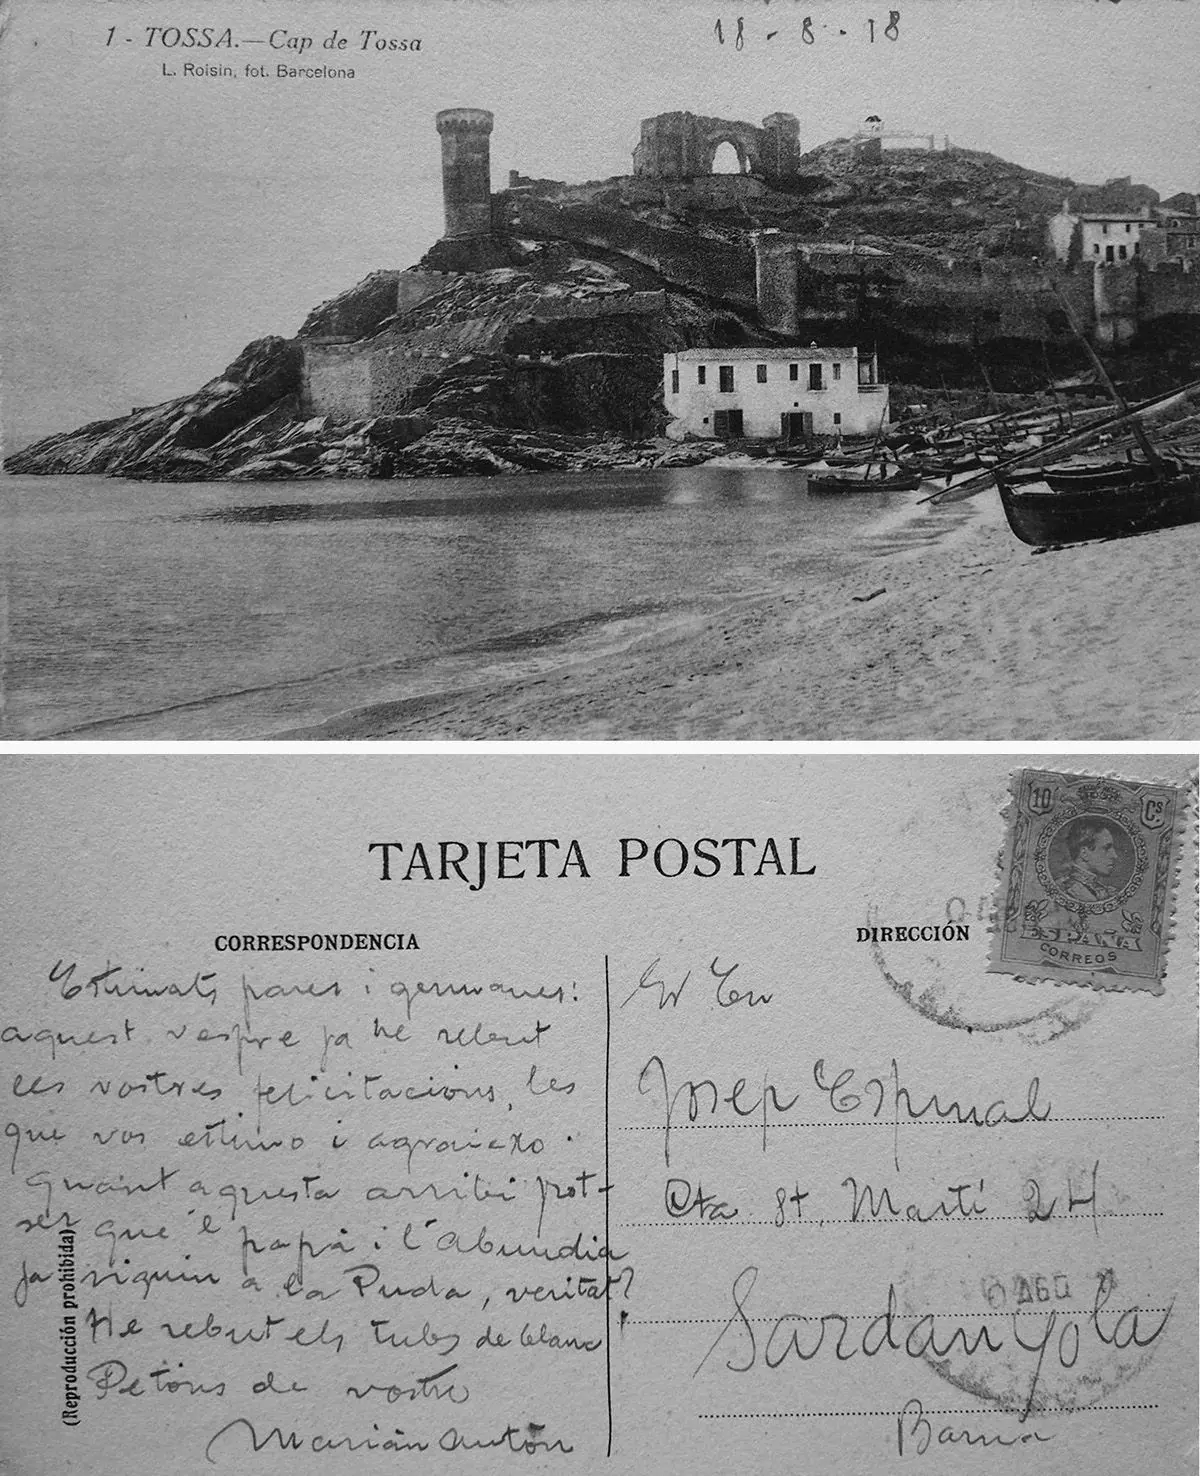 1 - TOSSA.—Cap de Tossa
L. Roisin, fot. Barcelona
18 - 8 - 18
TARJETA POSTAL
CORRESPONDENCIA
Estimats pares i germanes:
aquest vespre ja he rebut
les vostres felicitacions, les
que vos estimo i agraeixo.
Quant aquesta arribi pot-
ser que'l papà i l'Abundia
ja siguin a la Puda, veritat?
He rebut els tubs de blanc
Petons de vostre
Marián Antón
(Reproducción prohibida)
DIRECCIÓN
10 Cs
ESPAÑA
CORREOS
Sr En
Josep Espinal
Cta St. Martí 24
AGO
Sardanyola
Barna